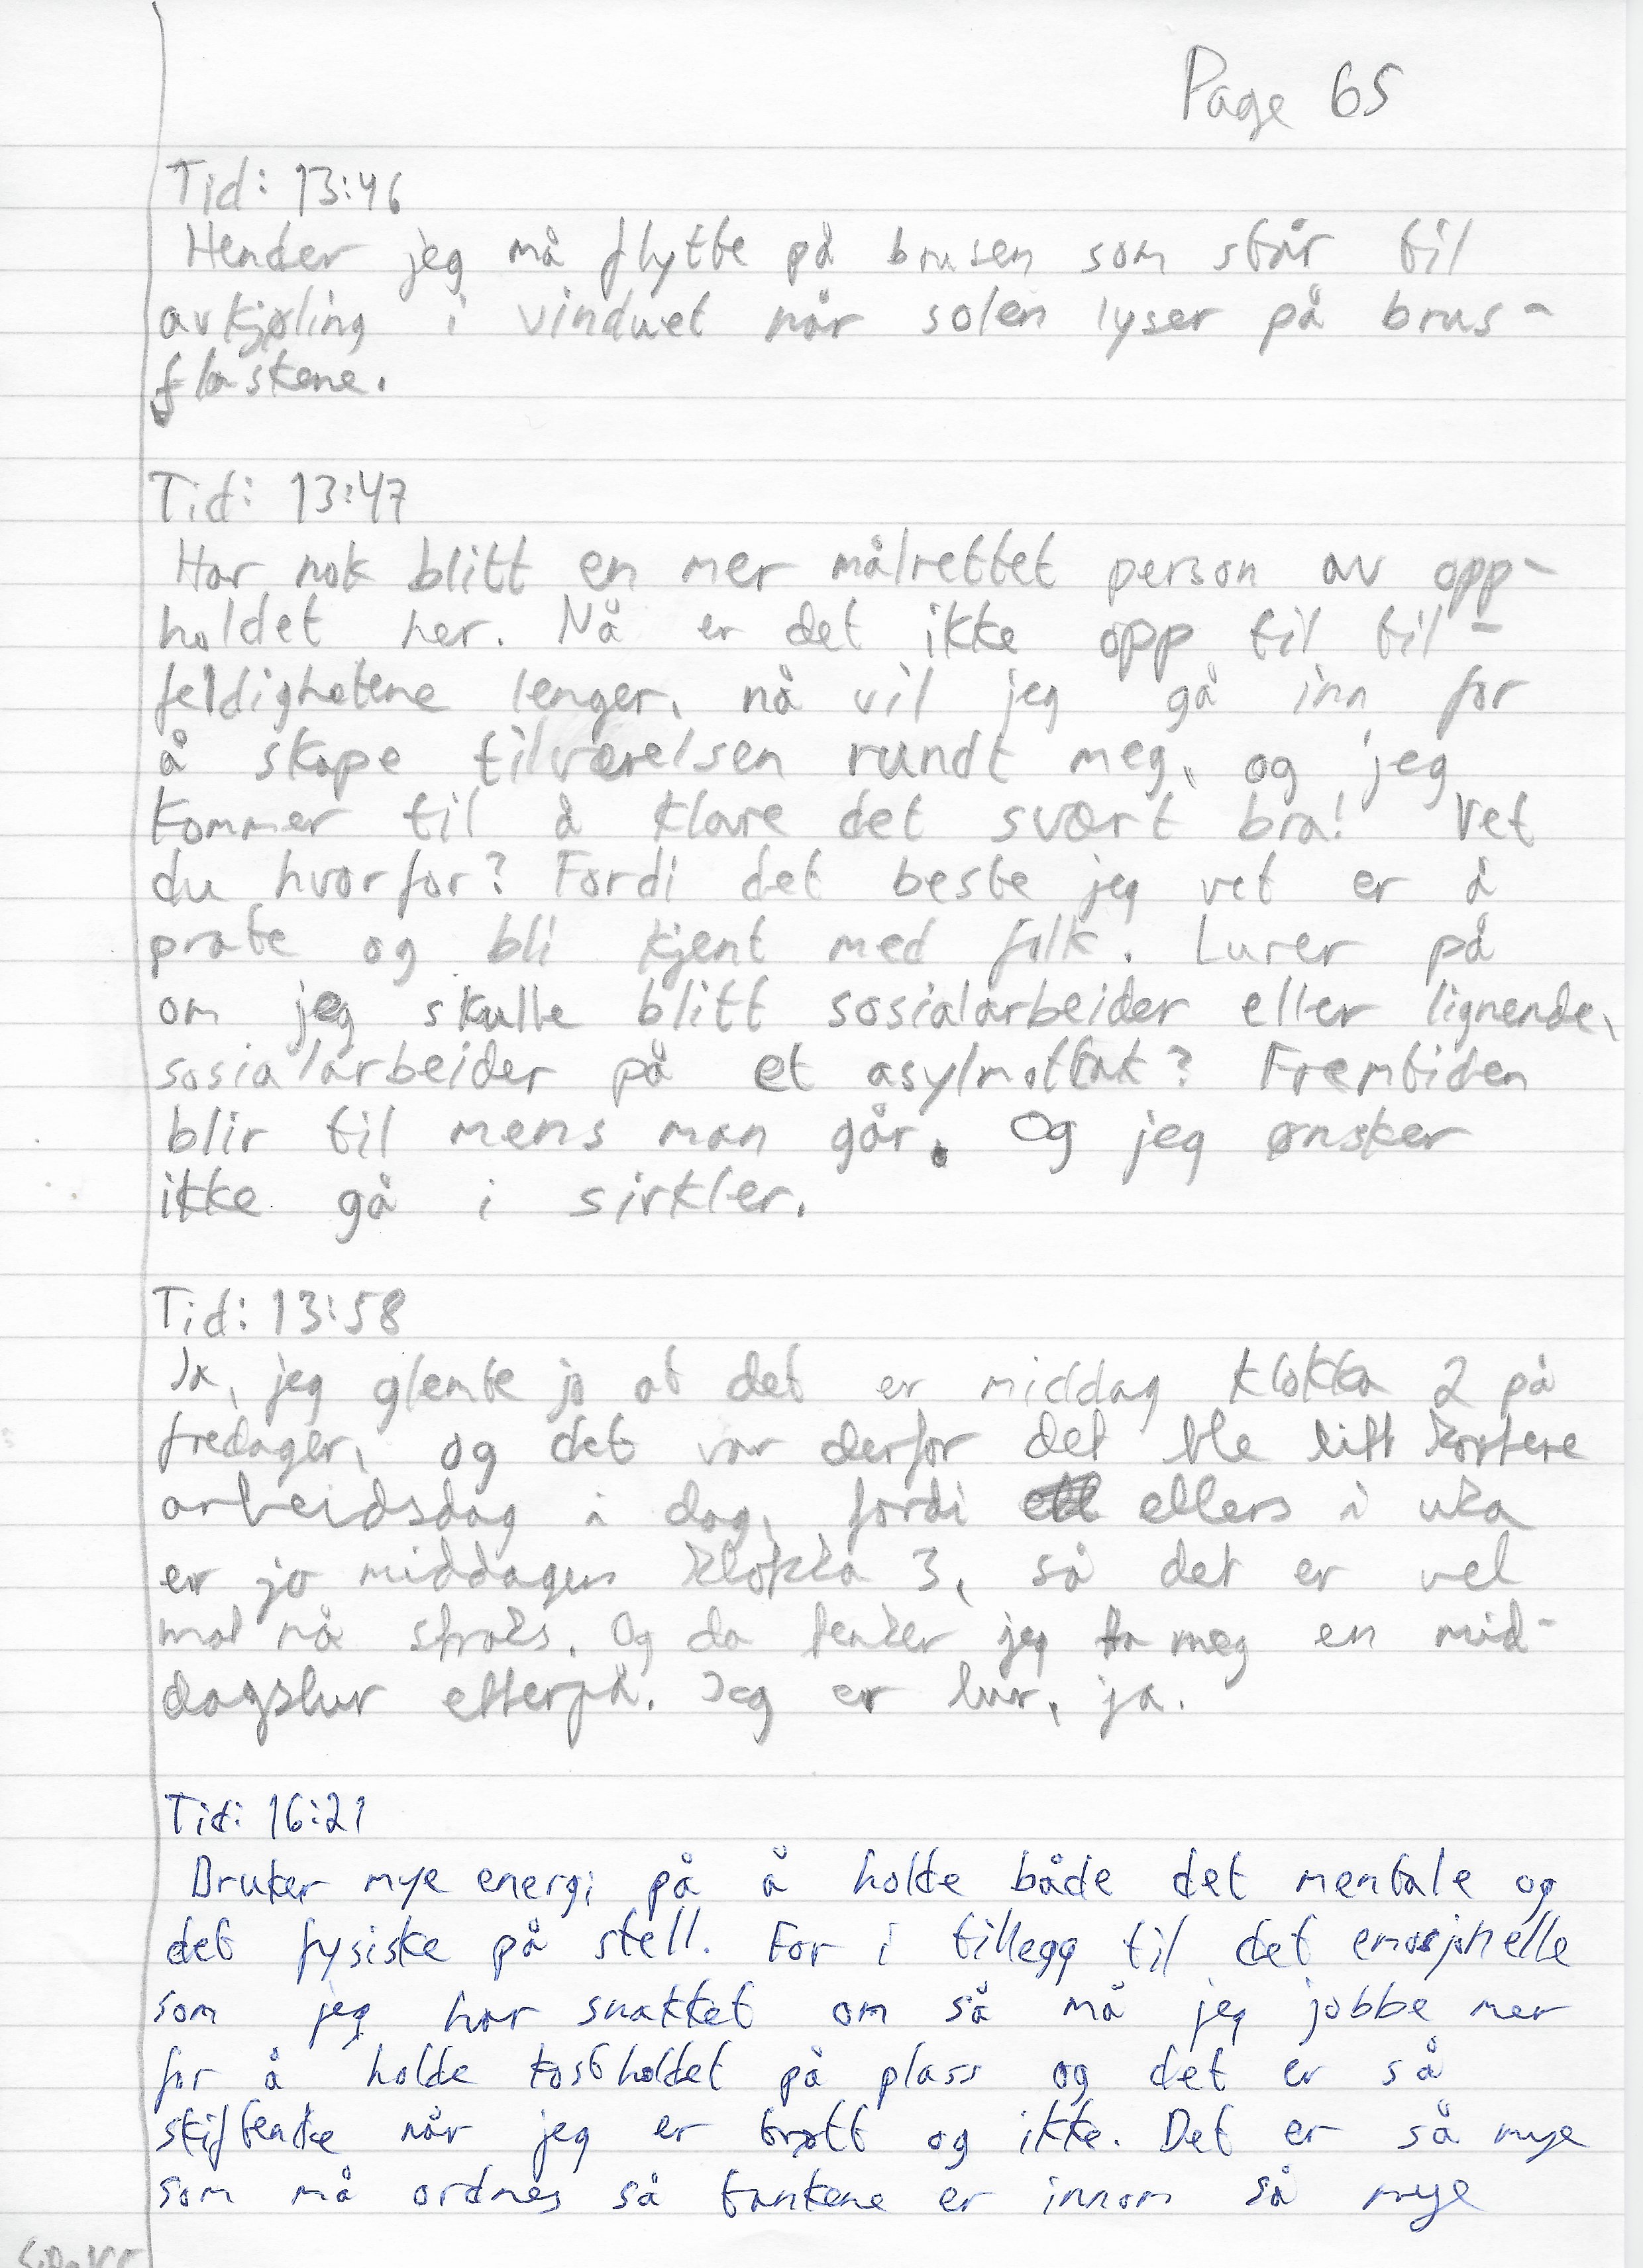 Page 65
Tid: 13:46
Hender jeg må flytte på brusen som står til
avkjøling i vinduet når solen lyser på brus-
flaskene.
Tid: 13:47
Har nok blitt en mer målrettet person av opp-
holdet her. Nå er det ikke opp til til-
feldighetene lenger, nå vil jeg gå inn for
å skape tilværelsen rundt meg, og jeg
kommer til å klare det svært bra! Vet
du hvorfor? Fordi det beste jeg vet er å
prate og bli kjent med folk. Lurer på
om jeg skulle blitt sosialarbeider eller lignende,
sosialarbeider på et asylmottak? Fremtiden
blir til mens man går. Og jeg ønsker
ikke gå i sirkler.
Tid: 13:58
Ja, jeg glemte jo at det er middag klokka 2 på
fredager, og det var derfor det ble litt kortere
arbeidsdag i dag, fordi ellers i uka
er jo middagen klokka 3, så det er vel
mat nå straks. Og da tenker jeg ta meg en mid-
dagslur etterpå. Jeg er lur, ja.
Tid: 16:21
Bruker mye energi på å holde både det mentale og
det fysiske på stell. For i tillegg til det emosjonelle
som jeg har snakket om så må jeg jobbe mer
for å holde kostholdet på plass og det er så
skiftende når jeg er trøtt og ikke. Det er så mye
som må ordnes så tankene er innom så mye